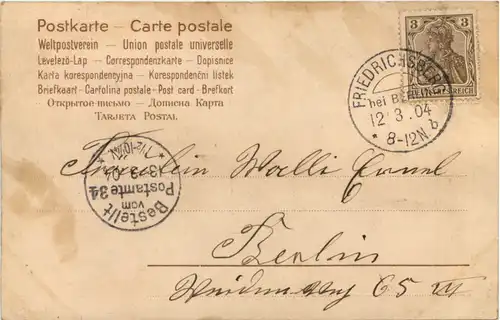 Postkarte – Carte postale
Weltpostverein – Union postale universelle
Levelező-Lap – Correspondenzkarte – Dopisnice
Karta korespondencyjna – Korespondenční lístek
Briefkaart – Cartolina postale – Post card – Brefkort
Открытое письмо – Дописна Карта
Tarjeta Postal
3 3
REICH
FRIEDRICHSBERG
bei
12.3.04
8-12N b
Bestellt
vom
Postamte 34
13.3.04
Fräulein Walli
Berlin
65 III